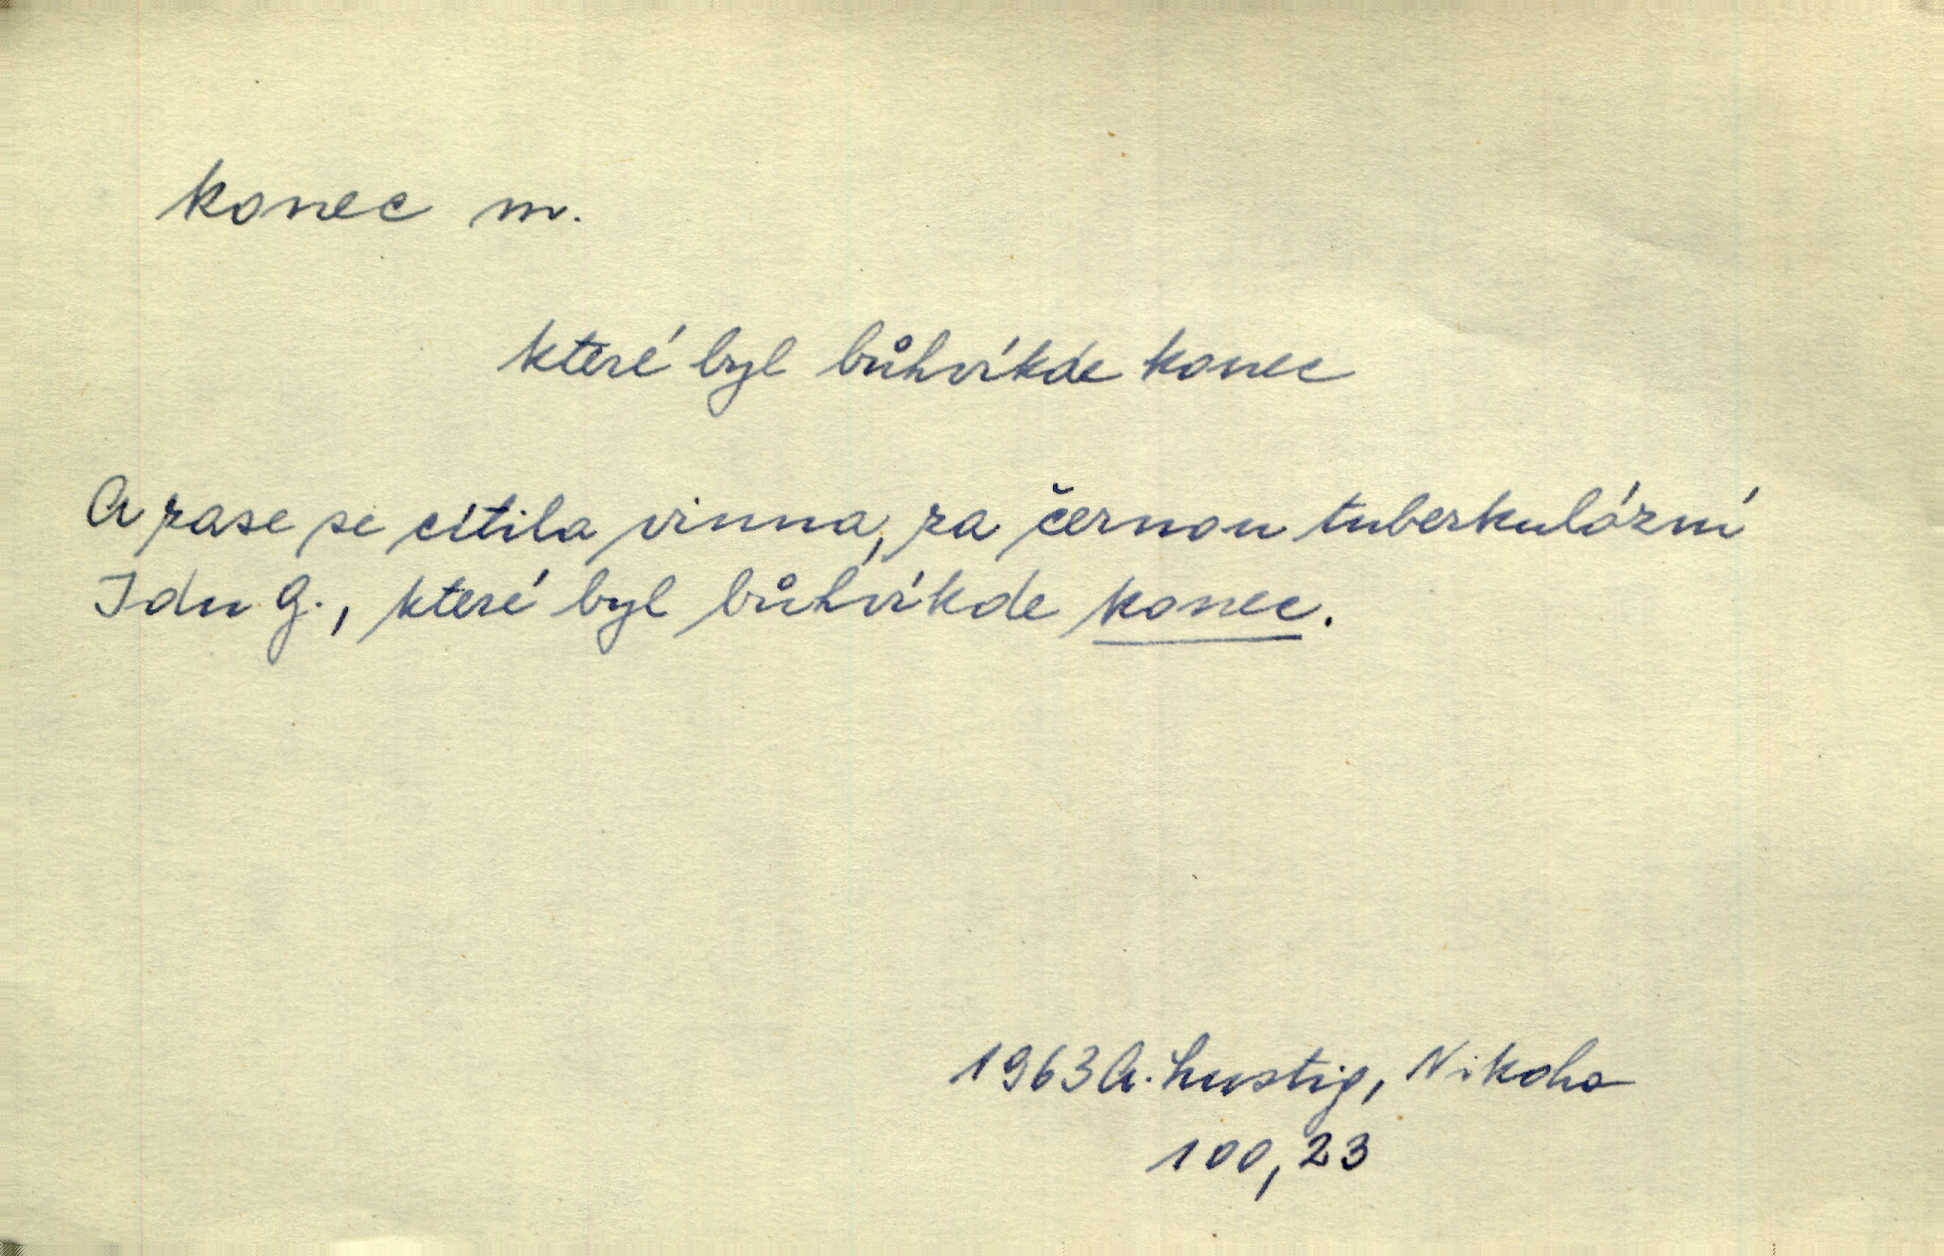 konec m.
které byl bůhvíkde konec
A zase se cítila vinna, za černou tuberkulózní
Idu G., které byl bůhvíkde konec.
1963 A. Lustig, Nikoho
100, 23